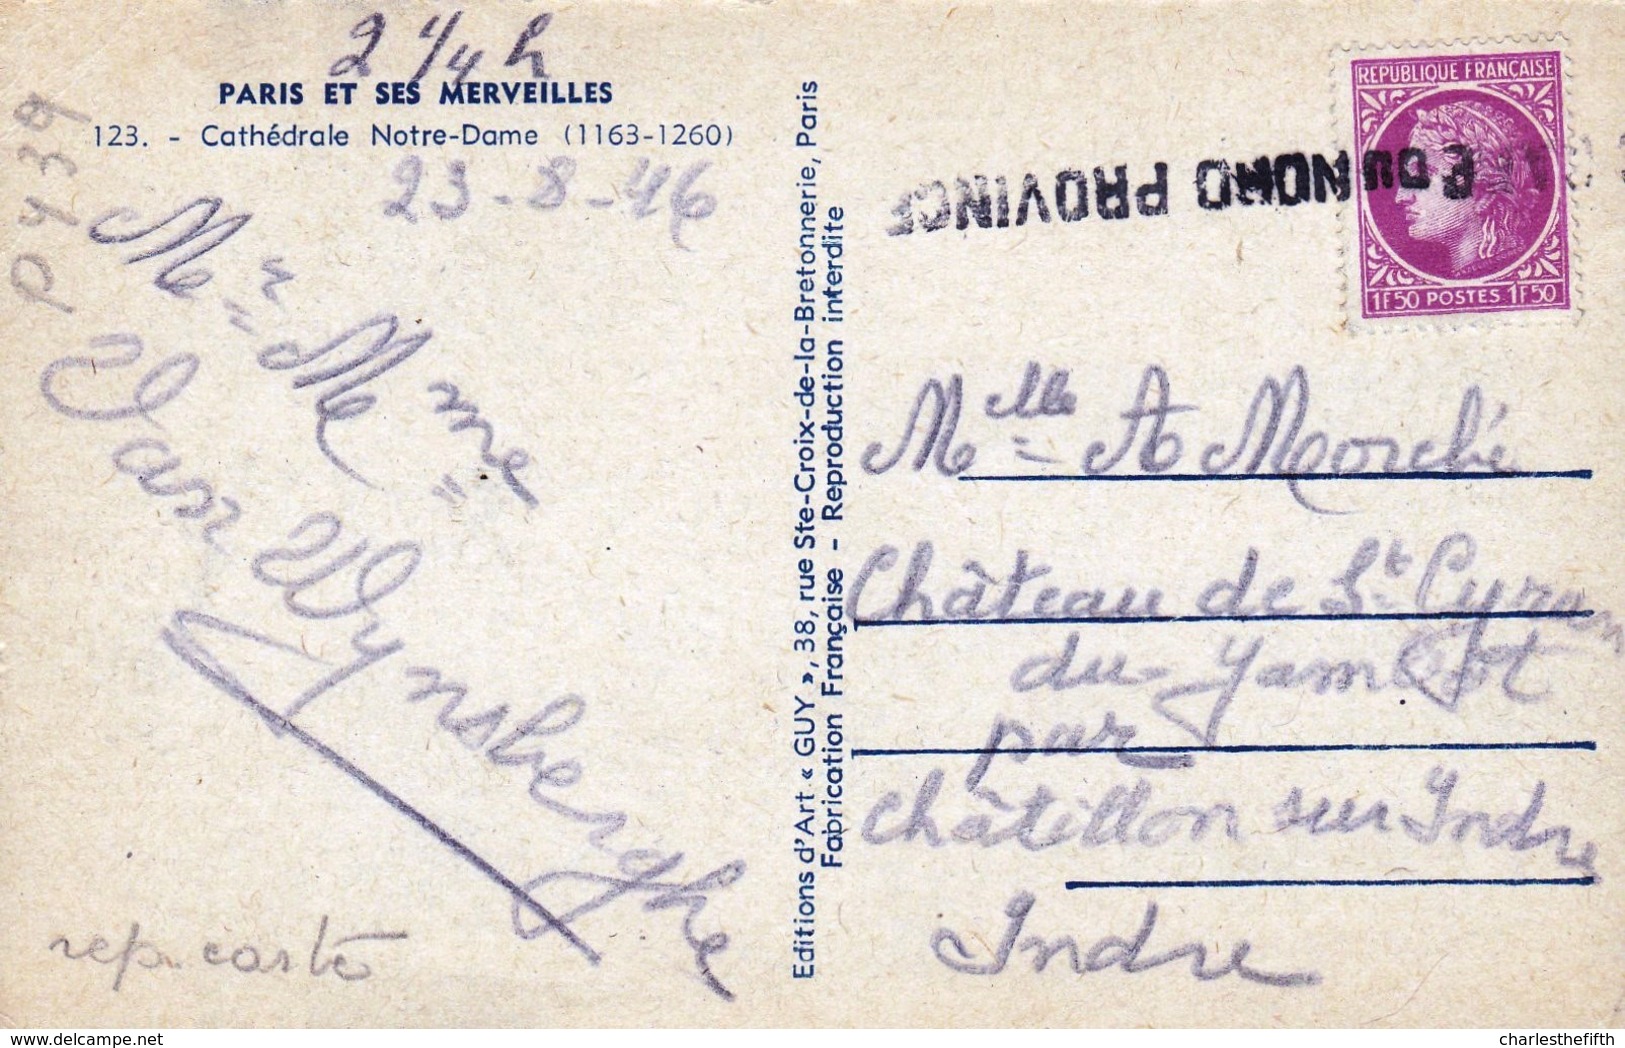 2 1/4 h
PARIS ET SES MERVEILLES
123. - Cathédrale Notre-Dame (1163-1260)
23-8-46
P 439
Mr Mme
Van Wynsberghe
rep. carte
Editions d'Art « GUY », 38, rue Ste-Croix-de-la-Bretonnerie, Paris
Fabrication Française - Reproduction interdite
REPUBLIQUE FRANÇAISE
1F50 POSTES 1F50
DU NORD PROVINCE
Mlle A Morché
Château de St Cyran
du Jambot
par
Châtillon sur Indre
Indre
charlesthefifth